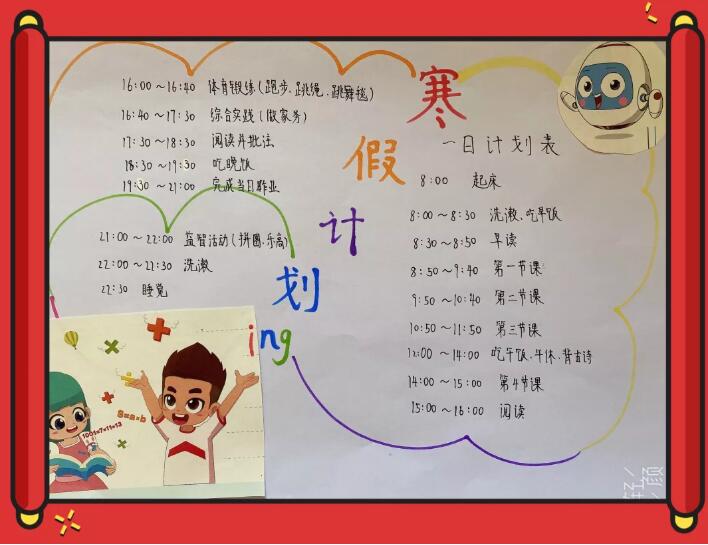 寒假计划ing
一日计划表
8:00 起床
8:00~8:30 洗漱、吃早饭
8:30~8:50 早读
8:50~9:40 第一节课
9:50~10:40 第二节课
10:50~11:50 第三节课
12:00~14:00 吃午饭、午休、背古诗
14:00~15:00 第4节课
15:00~16:00 阅读
16:00~16:40 体育锻练(跑步、跳绳、跳舞毯)
16:40~17:30 综合实践(做家务)
17:30~18:30 阅读并批注
18:30~19:30 吃晚饭
19:30~21:00 完成当日作业
21:00~22:00 益智活动(拼图、乐高)
22:00~22:30 洗漱
22:30 睡觉
8=a×b
1001=7×11×13
轻颜